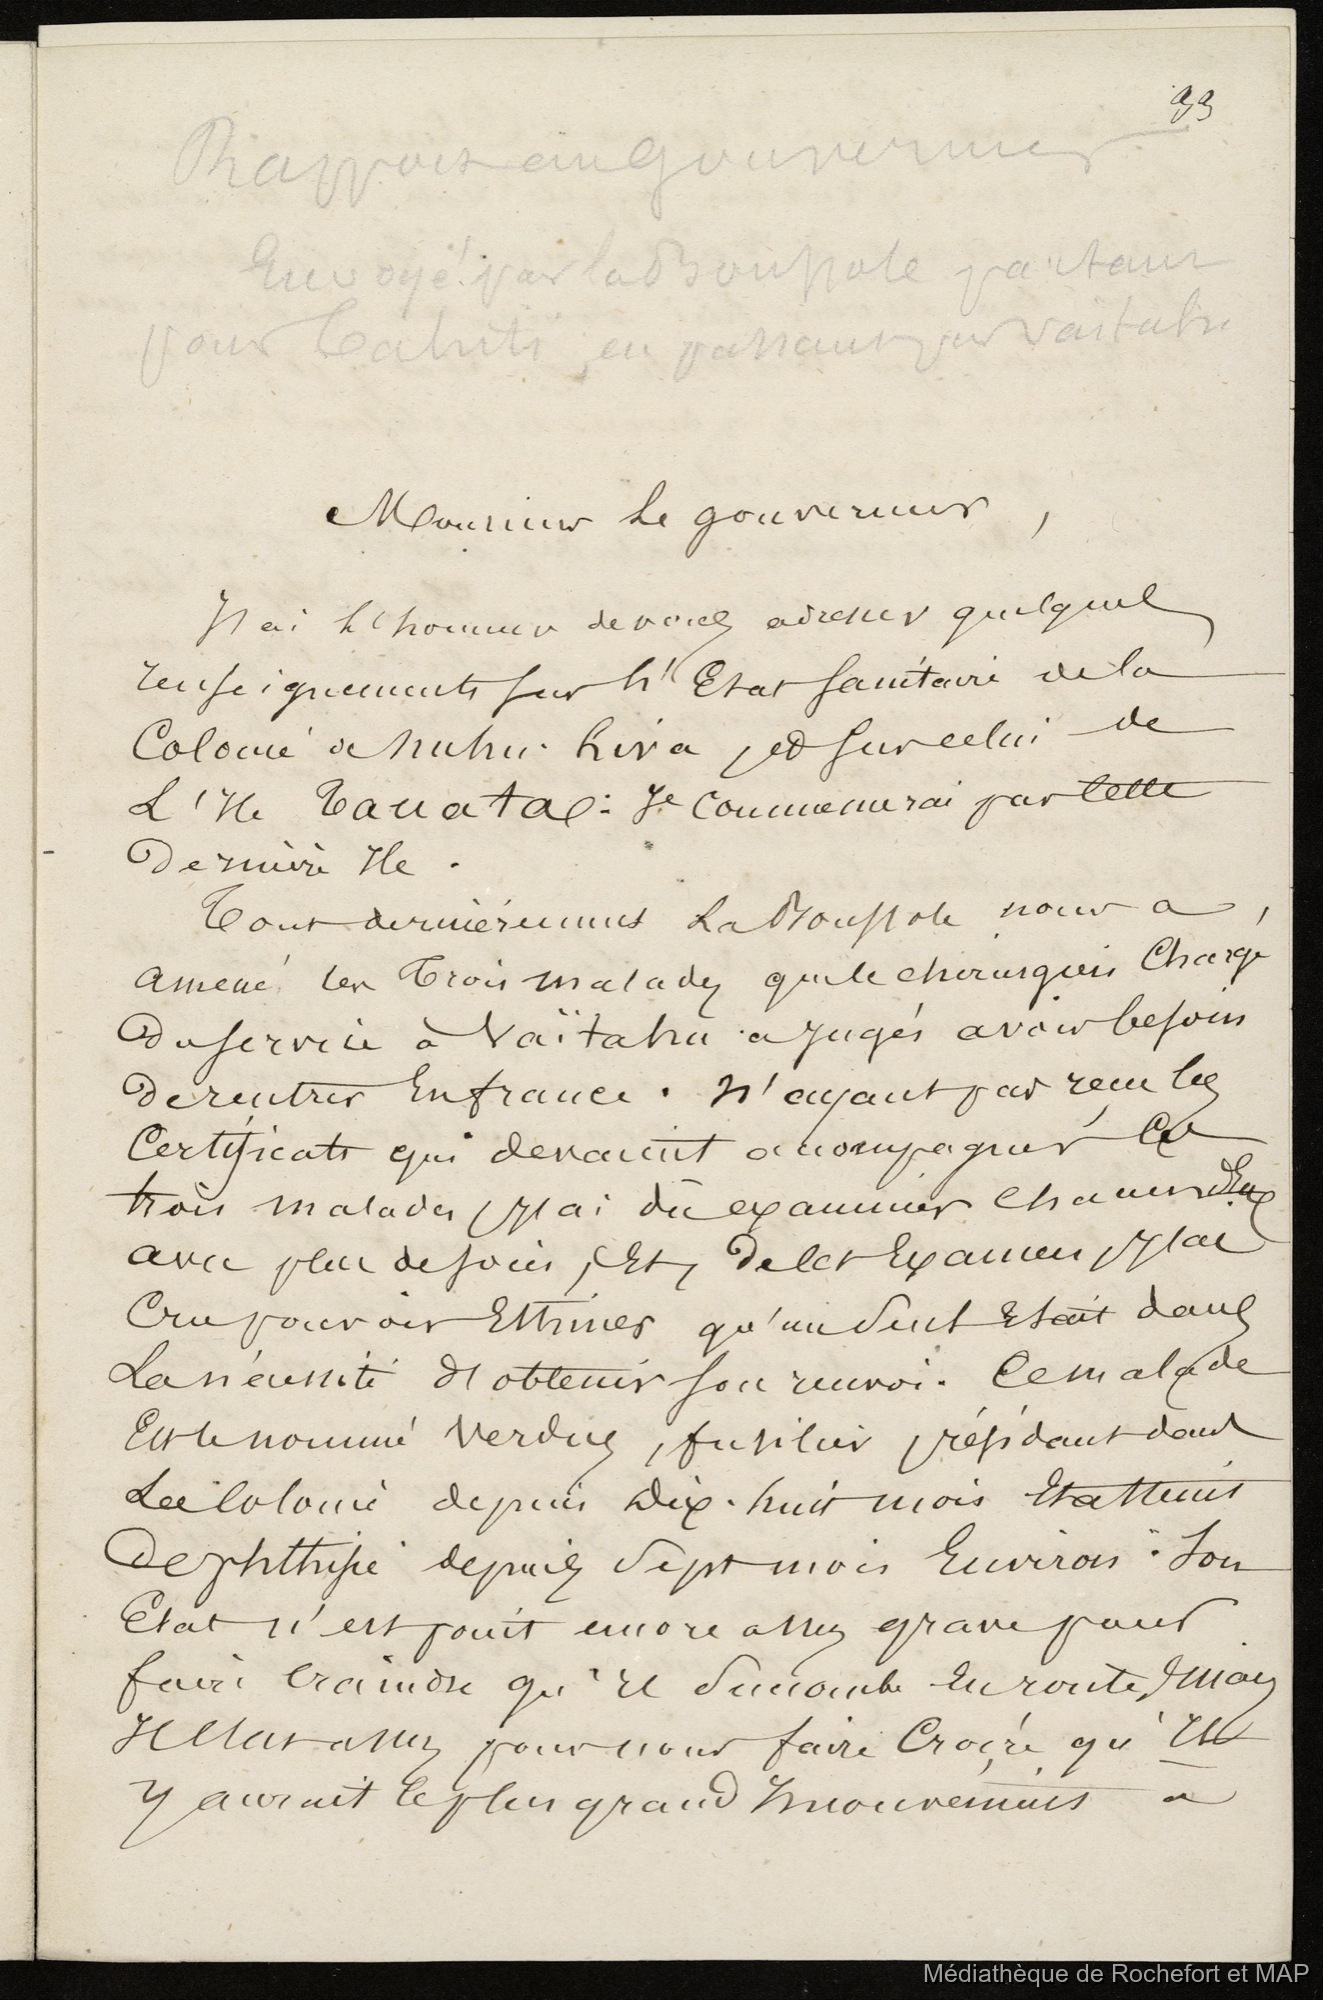 99
Rapport au gouverneur
Envoyé par la Boussole partant
pour Tahiti, en passant par Vaitahu
Monsieur Le gouverneur,
J'ai l'honneur de vous adresser quelques
renseignements sur l'Etat sanitaire de la
Colonie de Nuhu-hiva, et sur celui de
L'Ile Tauata. Je commencerai par cette
Dernière Ile.
Tout dernièrement La Boussole nous a,
amené les Trois malades que le chirurgien Chargé
Du service à Vaïtahu a jugés avoir besoin
De rentrer En france. N'ayant pas recu les
Certificats qui devaient accompagner Ces
trois malades, J'ai dû examiner chacun d'Eux
avec plus de soin, Et, De cet Examen, J'ai
Cru pouvoir Estimer qu'un seul Etait dans
La nécessité d'obtenir son renvoi. Ce malade
Est le nommé Verduc, fusilier, résidant dans
La Colonie depuis Dix-huit mois Et atteint
De phthisie depuis Sept mois Environ. Son
Etat n'est point encore assez grave pour
faire craindre qu'Il succombe En route, mais
Il l'est assez pour nous faire Croire qu'Il
Y aurait le plus grand Inconvénient a
Médiathèque de Rochefort et MAP